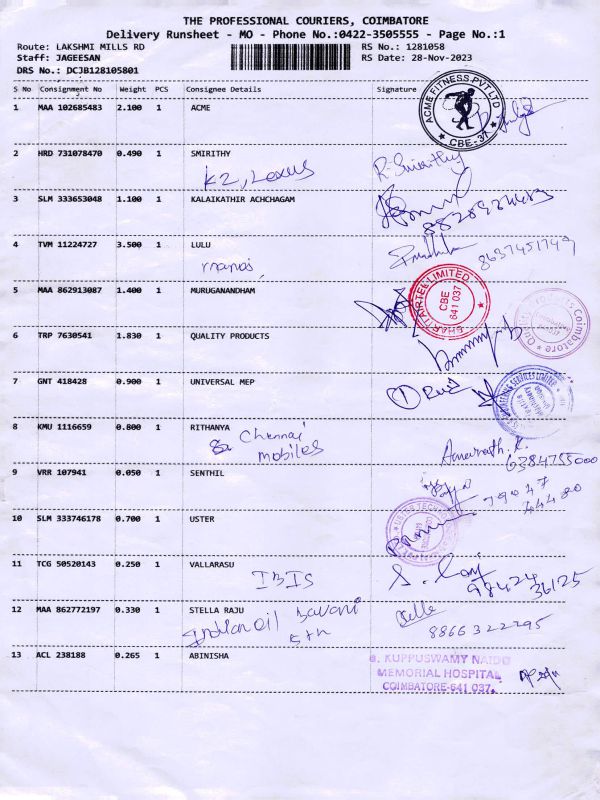 THE PROFESSIONAL COURIERS, COIMBATORE
Delivery Runsheet - MO - Phone No.:0422-3505555 - Page No.:1
Route: LAKSHMI MILLS RD
RS No.: 1281058
Staff: JAGEESAN
RS Date: 28-Nov-2023
DRS No.: DCJB128105801
S No Consignment No Weight PCS Consignee Details Signature
1 MAA 102685483 2.100 1 ACME
ACME FITNESS PVT LTD
* CBE-37 *
2 HRD 731078470 0.490 1 SMIRITHY
R. Smirithy
K2, Lexus
3 SLM 333653048 1.100 1 KALAIKATHIR ACHCHAGAM
4 TVM 11224727 3.500 1 LULU
8637451749
5 MAA 862913087 1.400 1 MURUGANANDHAM
BHARTI AIRTEL LIMITED
CBE
641 037
6 TRP 7630541 1.830 1 QUALITY PRODUCTS
Coimbatore
7 GNT 418428 0.900 1 UNIVERSAL MEP
8 KMU 1116659 0.800 1 RITHANYA
Chennai
mobiles
Amarnath. K.
6384755000
9 VRR 107941 0.050 1 SENTHIL
79047
44480
10 SLM 333746178 0.700 1 USTER
11 TCG 50520143 0.250 1 VALLARASU
IBIS
98424
36125
12 MAA 862772197 0.330 1 STELLA RAJU
Stella
Indian oil Bavani
5th
8866322295
13 ACL 238188 0.265 1 ABINISHA
G. KUPPUSWAMY NAIDU
MEMORIAL HOSPITAL
COIMBATORE-641 037.